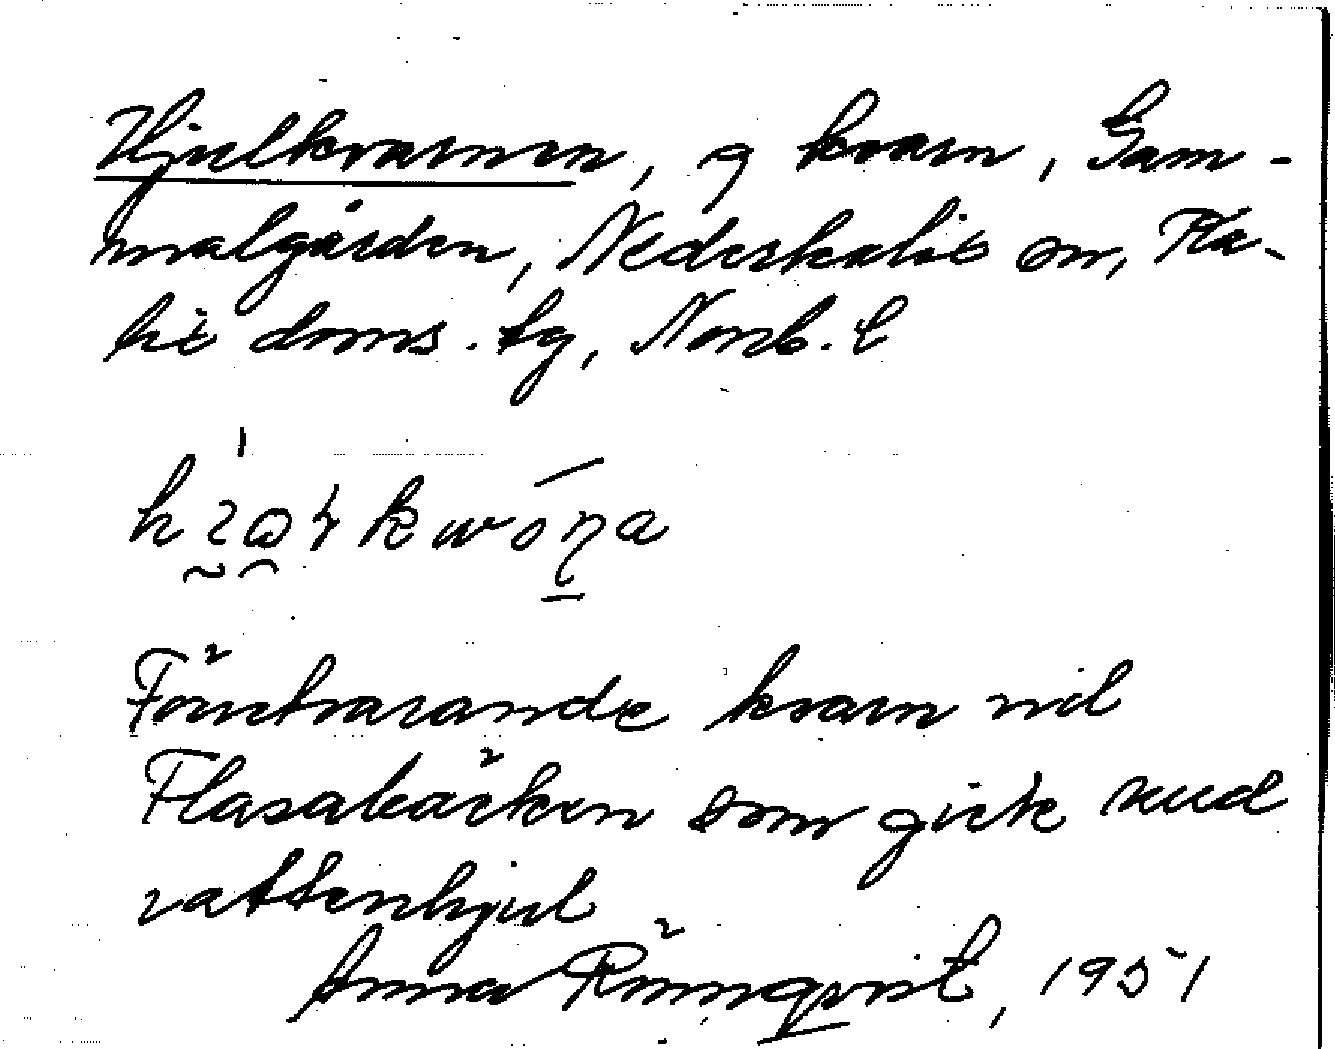 Hjulkvarnen, g kvarn, Gam-
malgården, Nederkalix sn, Ka-
lix doms. tg, Norrb. l
Förutvarande kvarn vid
Flasabäcken som gick med
vattenhjul
Anna Rönnqvist, 1951